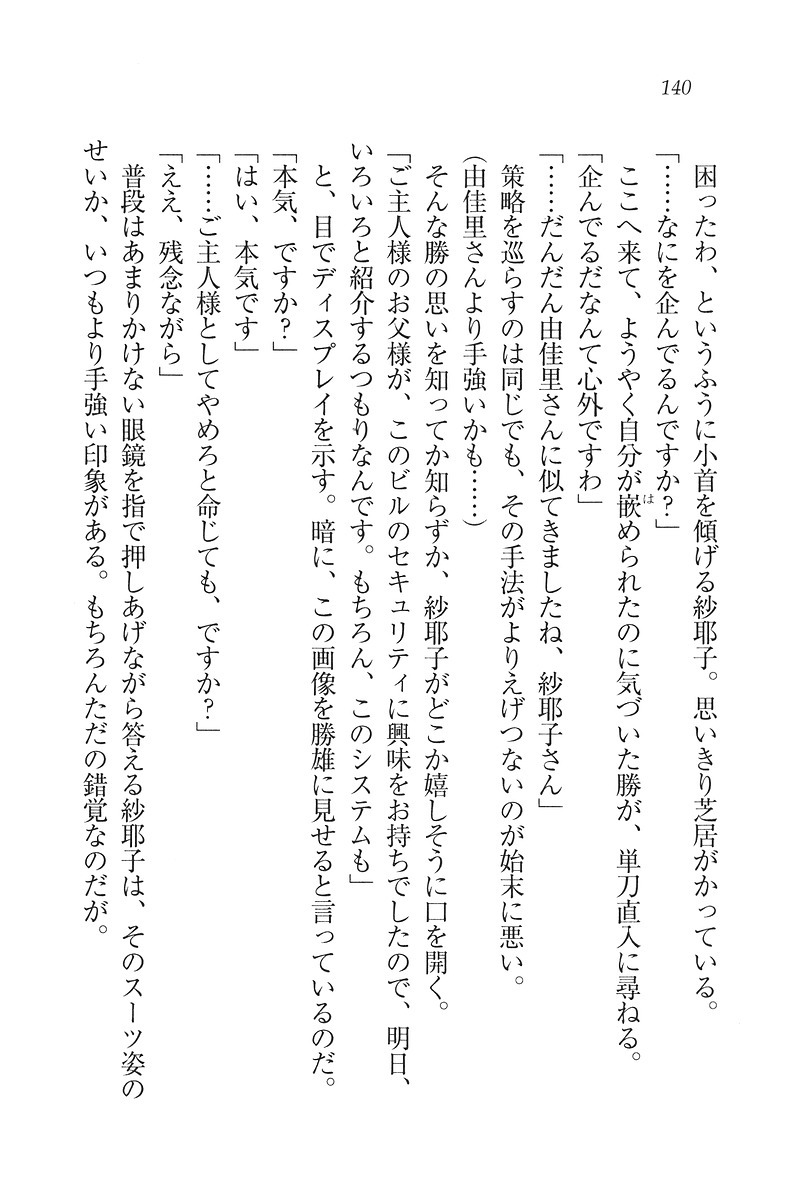 140
　困ったわ、というふうに小首を傾げる紗耶子。思いきり芝居がかっている。
「……なにを企んでるんですか？」
　ここへ来て、ようやく自分が嵌められたのに気づいた勝が、単刀直入に尋ねる。
は
「企んでるだなんて心外ですわ」
「……だんだん由佳里さんに似てきましたね、紗耶子さん」
　策略を巡らすのは同じでも、その手法がよりえげつないのが始末に悪い。
（由佳里さんより手強いかも……）
　そんな勝の思いを知ってか知らずか、紗耶子がどこか嬉しそうに口を開く。
「ご主人様のお父様が、このビルのセキュリティに興味をお持ちでしたので、明日、
いろいろと紹介するつもりなんです。もちろん、このシステムも」
　と、目でディスプレイを示す。暗に、この画像を勝雄に見せると言っているのだ。
「本気、ですか？」
「はい、本気です」
「……ご主人様としてやめろと命じても、ですか？」
「ええ、残念ながら」
　普段はあまりかけない眼鏡を指で押しあげながら答える紗耶子は、そのスーツ姿の
せいか、いつもより手強い印象がある。もちろんただの錯覚なのだが。